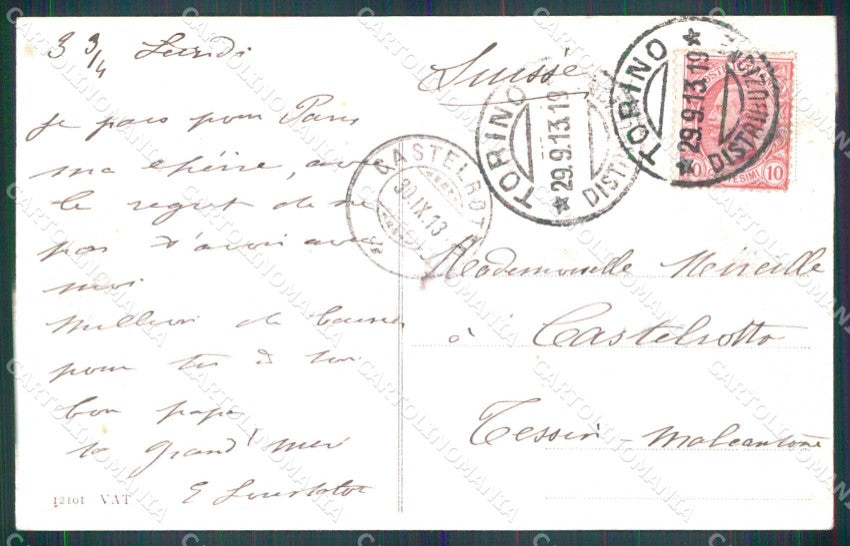 3 3/4 Lundi
Suisse
je pars pour Paris
ma chérie, avec
le regret de ne
pas t'avoir avec
moi
Million de baisers
pour toi & ton
bon papa
ta grand'mer
E
Mademoiselle Mireille
à Castelrotto
Tessin - Malcantone
TORINO
29.9.13.19
DIST
TORINO
29.9.13 19
DISTRIBUZIONE
10 CENTESIMI 10
CASTELROTTO
30.IX.13
12101 VAT
CARTOLINOMANIA